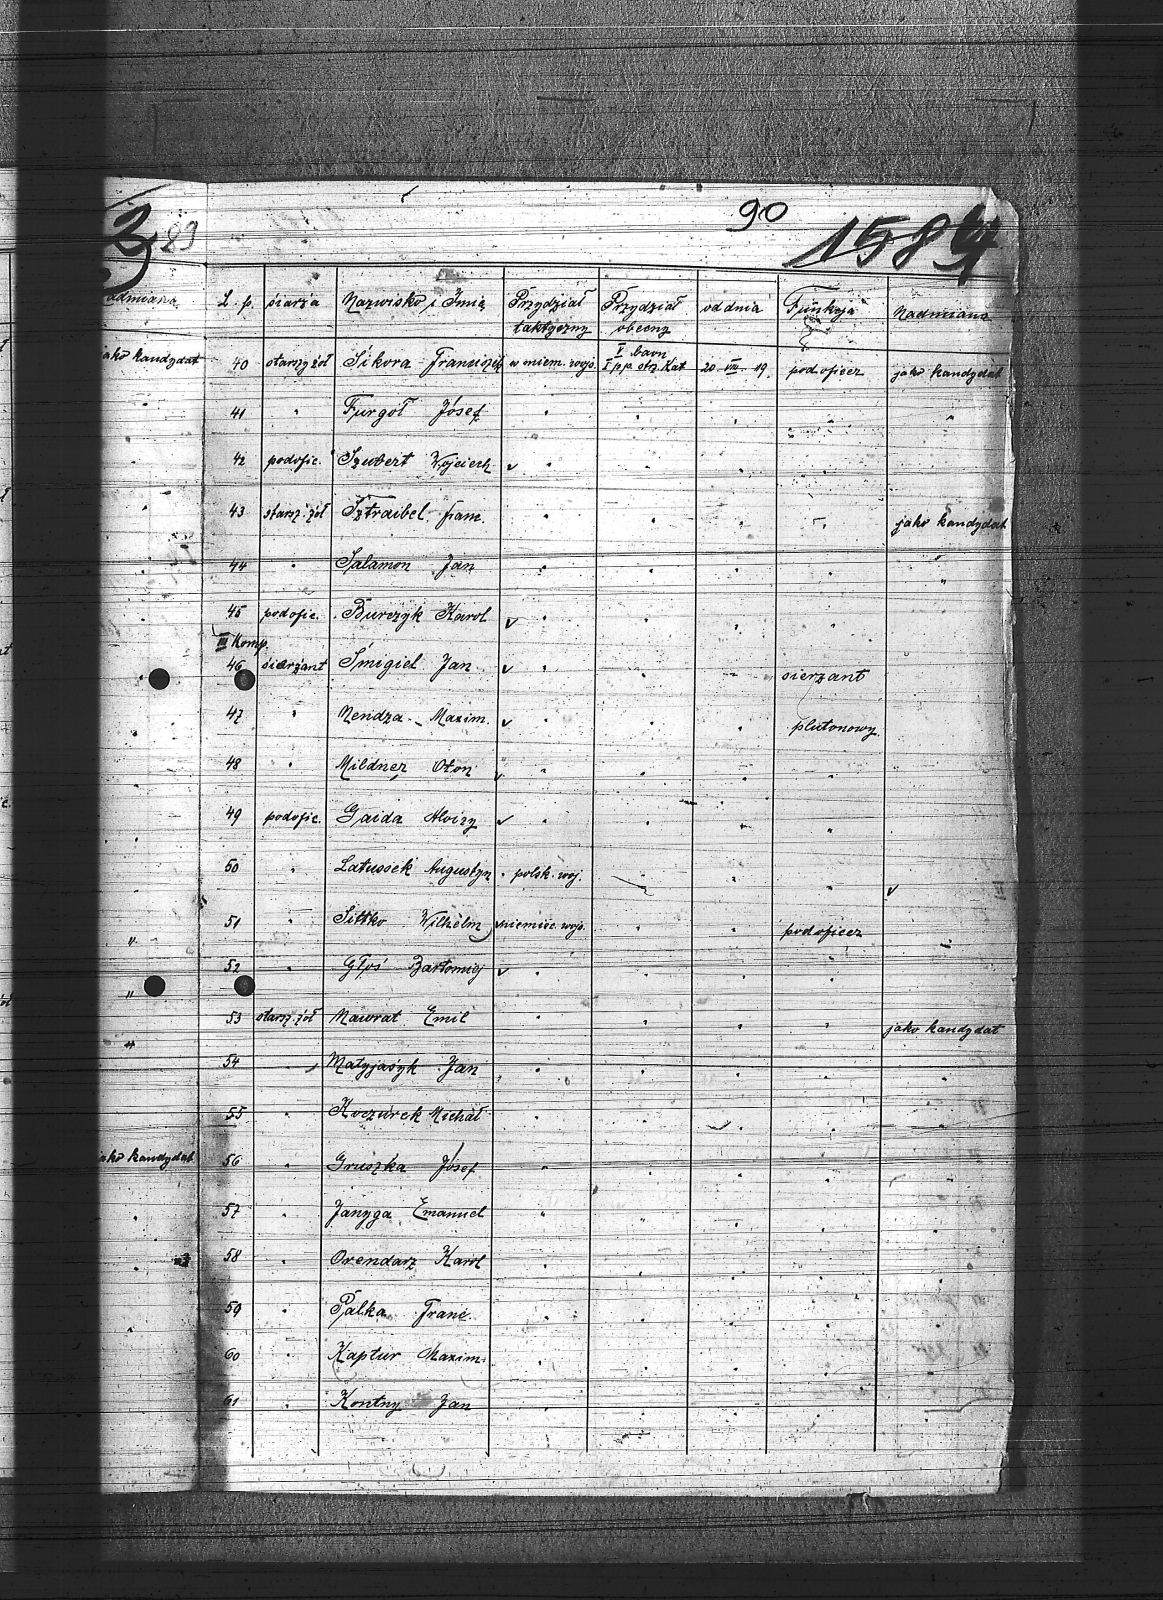 83
90
1584
admiana
L. p. śiarża Nazwisko i Imię Przydział taktyczny Przydział obecny od dnia Funkcja Nadmiana
jako kandydat
40 starszy żoł Sikora Franciszek w niem. wojs. V baon I p.p. strz. Kat 20 VIII 19. podoficer jako kandydat
41 " Furgoł Józef " " " " "
42 podofic. Szubert Wojciech " " " "
43 starsz. żoł Sztraibel Franc. " " " " jako kandydat
44 " Salamon Jan " " " " "
45 podofic. Burczyk Karol " " " "
III Komp.
46 sierżant Śmigiel Jan " " " sierżant
47 " Nendza Maxim. " " " plutonowy
48 " Mildner Oton " " " "
49 podofic. Gaida Aloizy " " " "
50 " Latussek Augustyn " polsk. woj. " " "
51 " Sittko Wilhelm niemiec. wojs. " " podoficer
52 " Głoś Bartomiej " " " "
53 starsz. żoł Nawrat Emil " " " " jako kandydat
54 " Matyjaśyk Jan " " " " "
55 " Koczurek Michał " " " " "
jako kandydat
56 " Gruszka Józef " " " " "
57 " Janyga Emanuel " " " " "
58 " Orendarz Karol " " " " "
59 " Palka Franc. " " " " "
60 " Kaptur Maxim. " " " " "
61 " Kontny Jan " " " " "